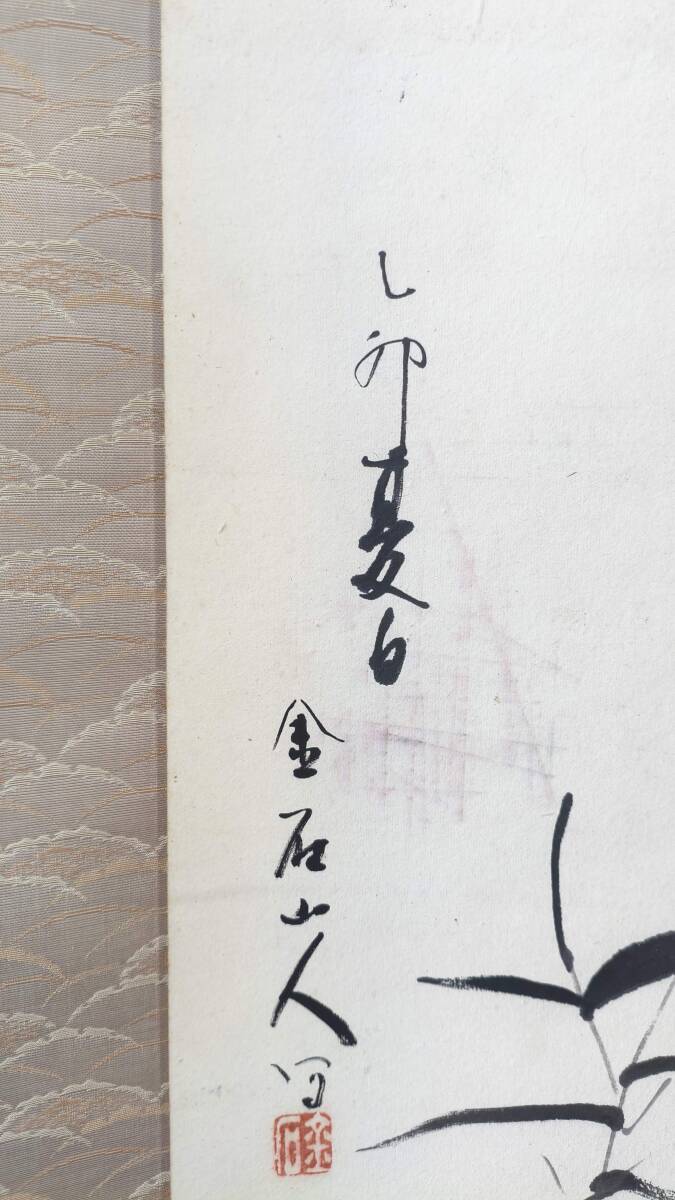 乙卯夏日
金石山人写
金石